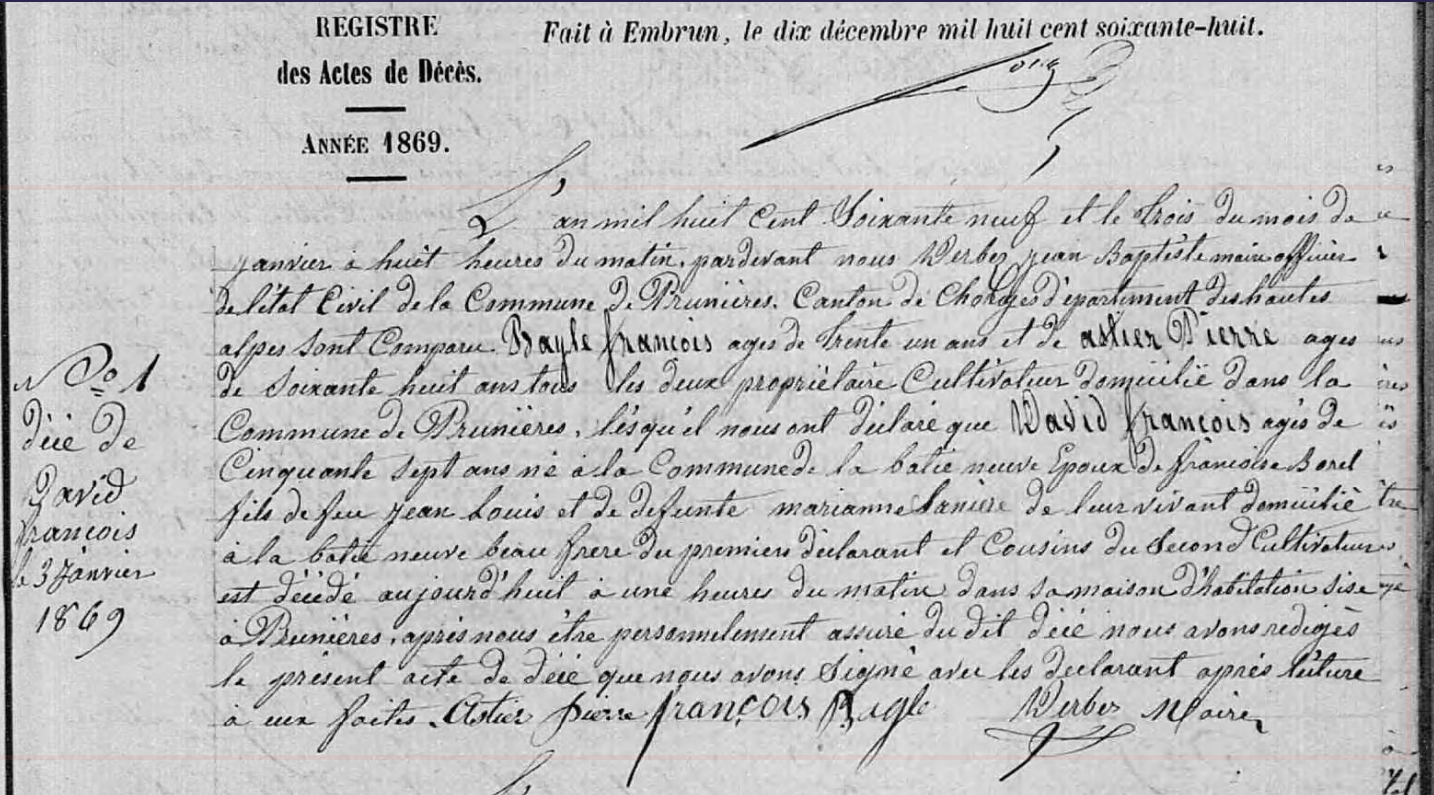 REGISTRE
des Actes de Décès.
ANNÉE 1869.
Fait à Embrun, le dix décembre mil huit cent soixante-huit.
L'an mil huit Cent Soixante neuf et le trois du mois de
janvier à huit heures du matin, pardevant nous Verbes jean Baptiste maire officier
de l'état Civil de la Commune de Prunières. Canton de Chorges d'épartment des hautes
alpes Sont Comparu Bayle françois ages de trente un ans et de astier Pierre ages
de Soixante huit ans tous les deux propriétaire Cultivateur domicilié dans la
Commune de Prunières, lesqu'el nous ont déclaré que David françois agés de
Cinquante Sept ans né à la Commune de la batie neuve Epoux de françoise Borel
fils de feu jean Louis et de defunte marianne de leur vivant domicilié
à la batie neuve beau frere du premiers déclarant et Cousins du Second Cultivateur
est décédé aujourd'huit à une heures du matin dans sa maison d'habitation sise
à Prunières, après nous être personnelement assuré du dit décé nous avons redigés
le présent acte de décé que nous avons Signé avec les declarant après lecture
à eux faites. Astier pierre françois Bayle Verbes Maire
N° 1
décé de
David
francois
le 3 janvier
1869